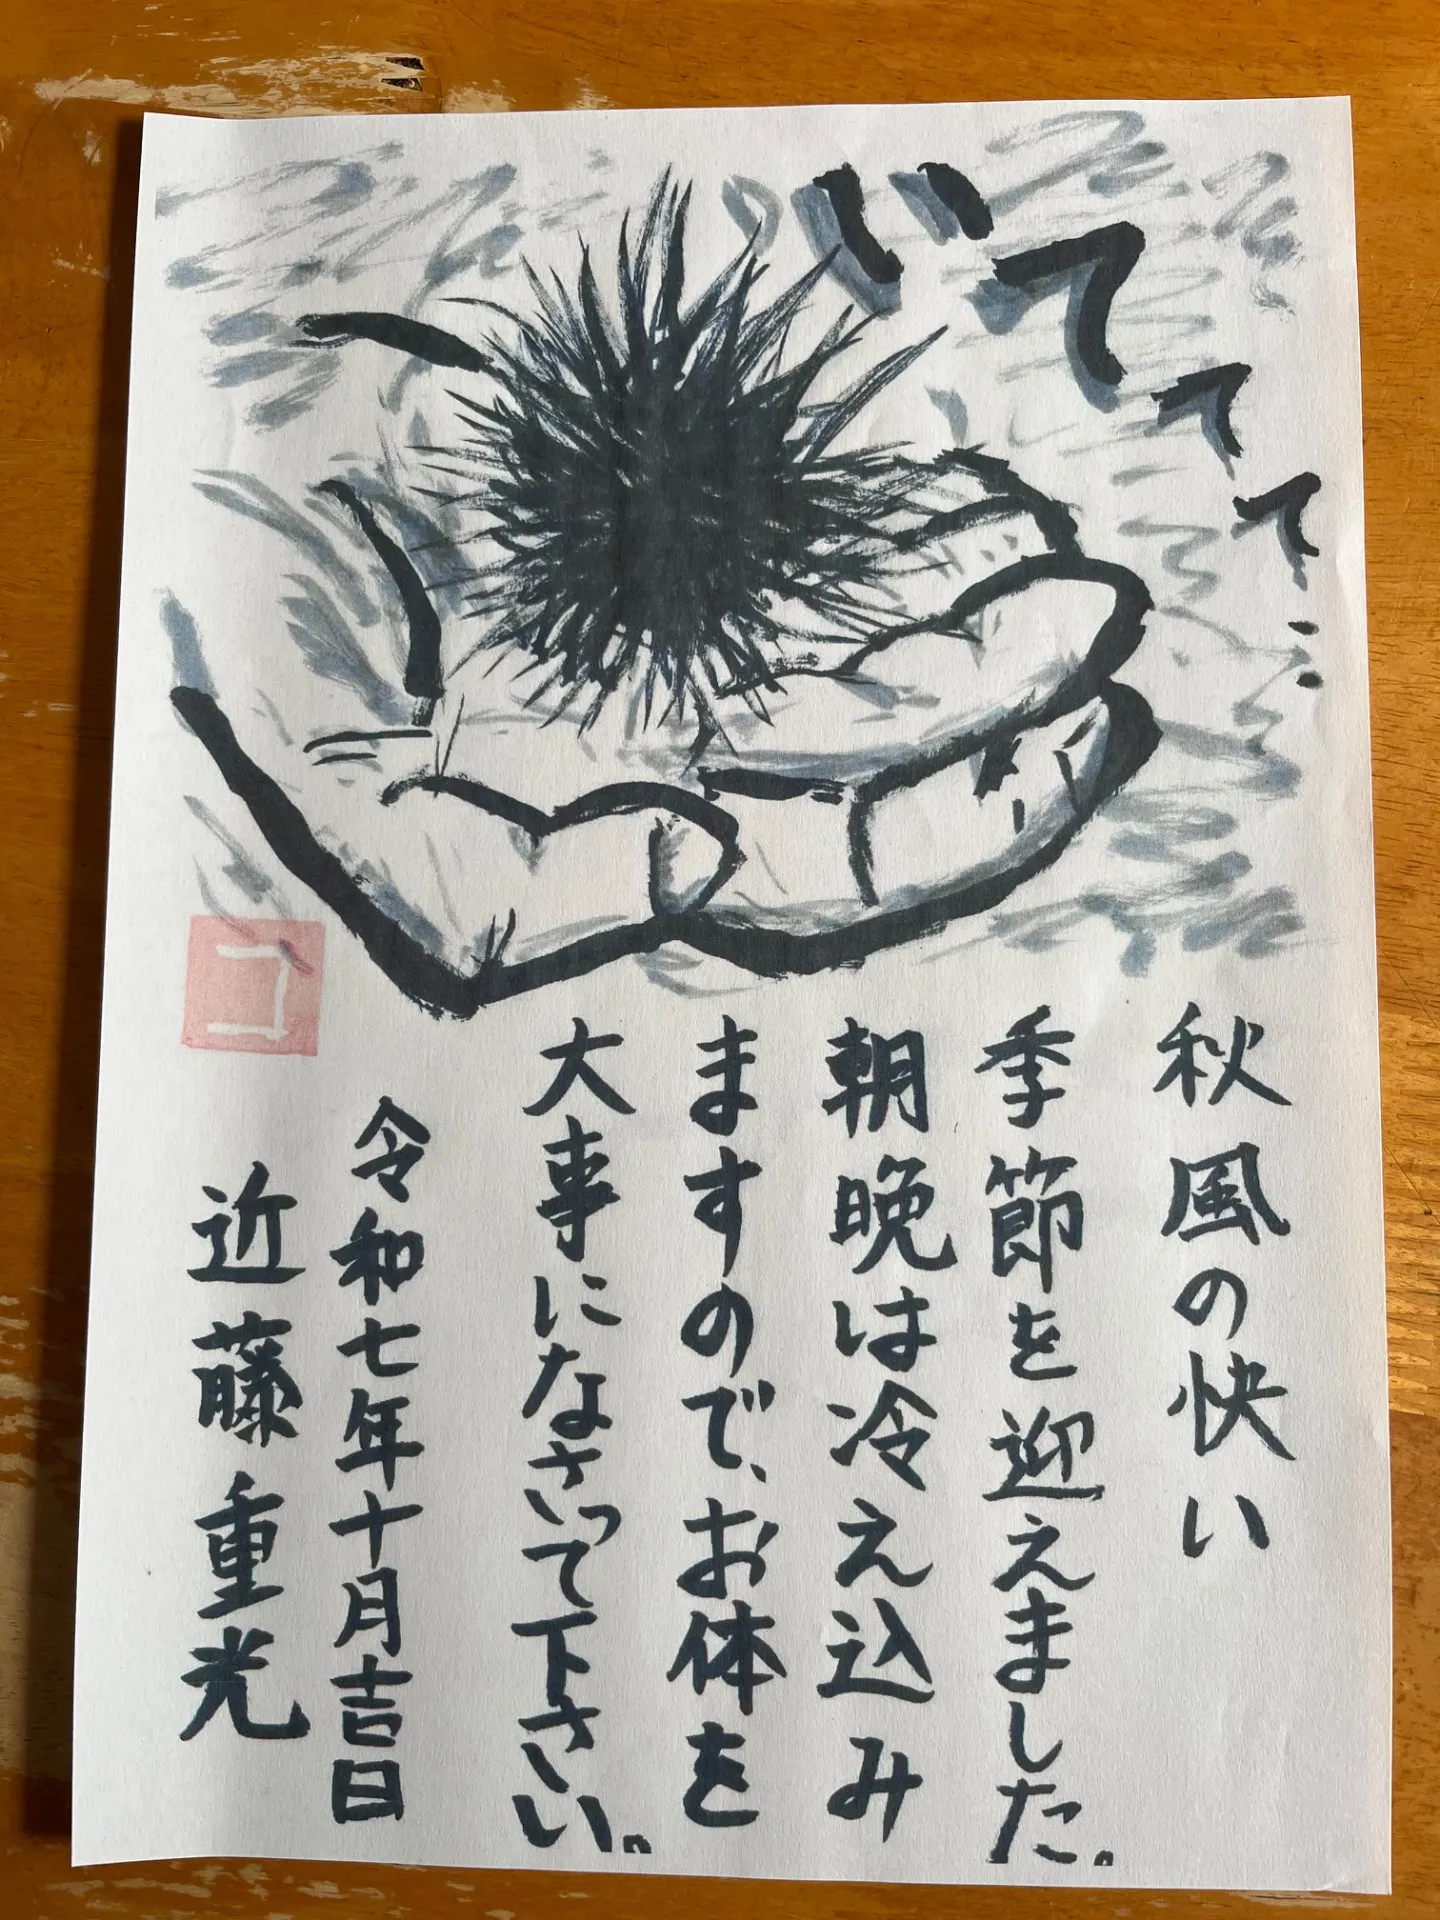 いてててて…
秋風の快い
季節を迎えました。
朝晩は冷え込み
ますので、お体を
大事になさって下さい。
令和七年十月吉日
近藤重光
コ